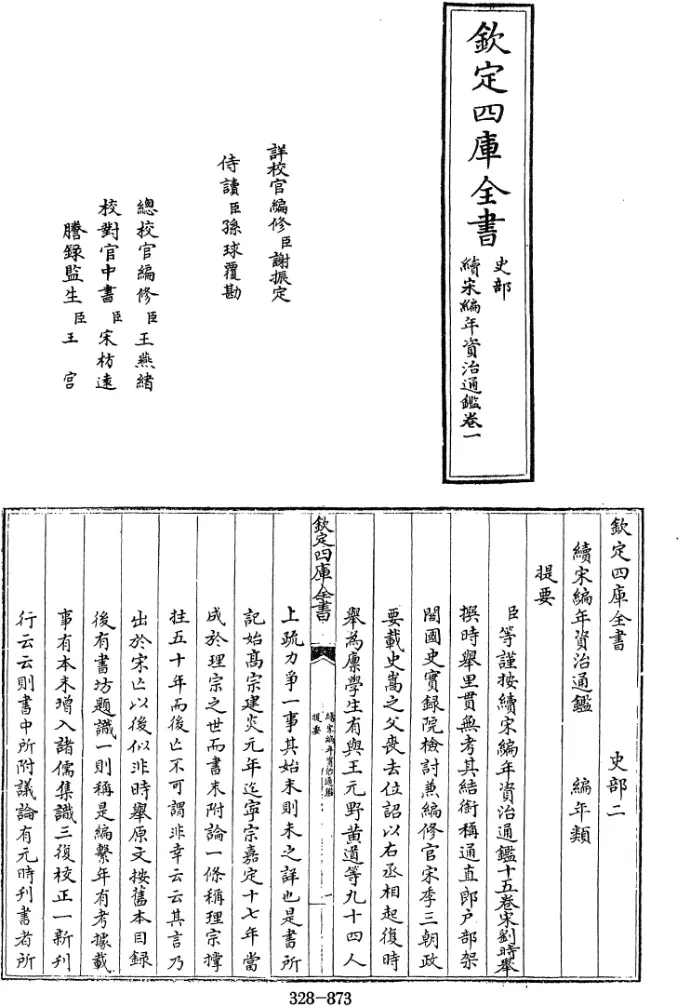 欽定四庫全書
史部
續宋編年資治通鑑卷一
詳校官編修臣謝振定
侍讀臣孫球覆勘
總校官編修臣王燕緒
校對官中書臣宋枋遠
謄錄監生臣王宮
欽定四庫全書
史部二
續宋編年資治通鑑
編年類
提要
臣等謹按續宋編年資治通鑑十五卷宋劉時舉
撰時舉里貫無考其結銜稱通直郎户部架
閣國史實録院檢討兼編修官宋季三朝政
要載史嵩之父喪去位詔以右丞相起復時
舉為廩學生有與王元野黄道等九十四人
欽定四庫全書
續宋編年資治通鑑
提要
一
上疏力爭一事其始末則未之詳也是書所
記始髙宗建炎元年迄寧宗嘉定十七年當
成於理宗之世而書末附論一條稱理宗撑
拄五十年而後亡不可謂非幸云云其言乃
出於宋亡以後似非時舉原文按舊本目録
後有書坊題識一則稱是編繫年有考據載
事有本末增入諸儒集識三復校正一新刊
行云云則書中所附議論有元時刊書者所
328-873